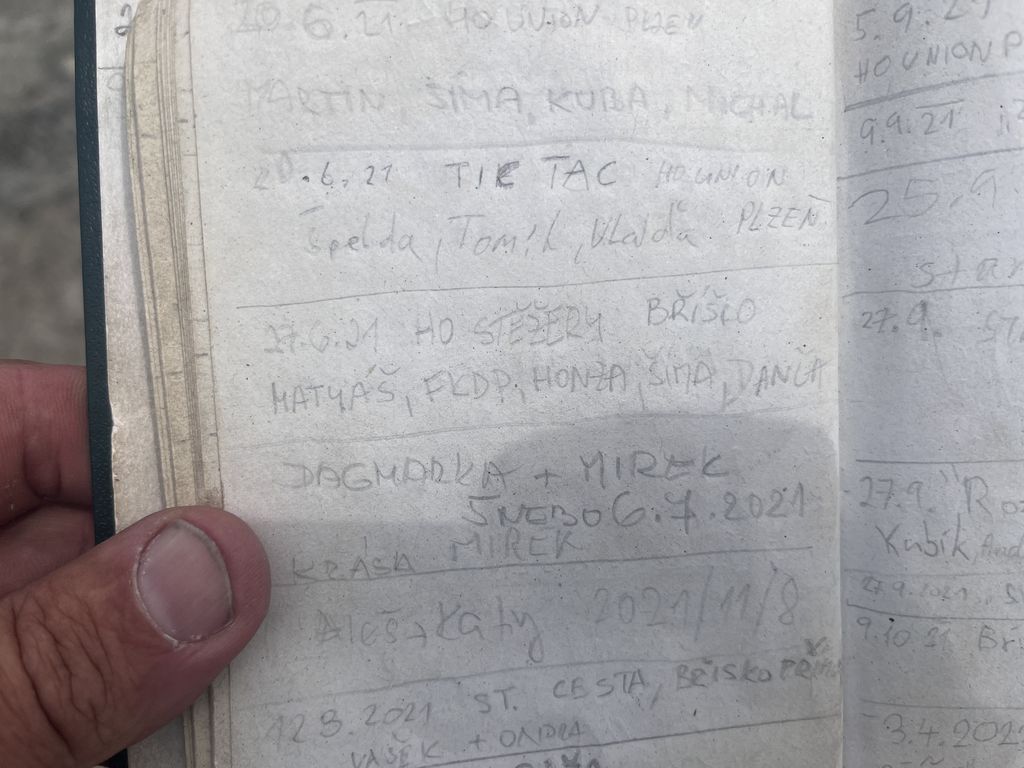 20.6.21 - HO UNION PLZEŇ
MARTIN, ŠÍMA, KUBA, MICHAL
20.6.21 TIC TAC HO UNION
PLZEŇ
Špelda, Tomík, Vlaďa
27.6.21 HO STĚŽERY BŘÍŠKO
MATYÁŠ, HONZA, ŠÍMA, DANČA
DAGMARKA + MIREK
6.7.2021
KRÁSA MIREK
Aleš + Katy 2021/11/8
12.8.2021 ST. CESTA, BŘÍŠKO
VAŠEK + ONDRA
5.9.21
HO UNION P
9.9.21
25.9.
star
27.9.
27.9.
Kubík,
27.9.2021
9.10.21
3.4.202